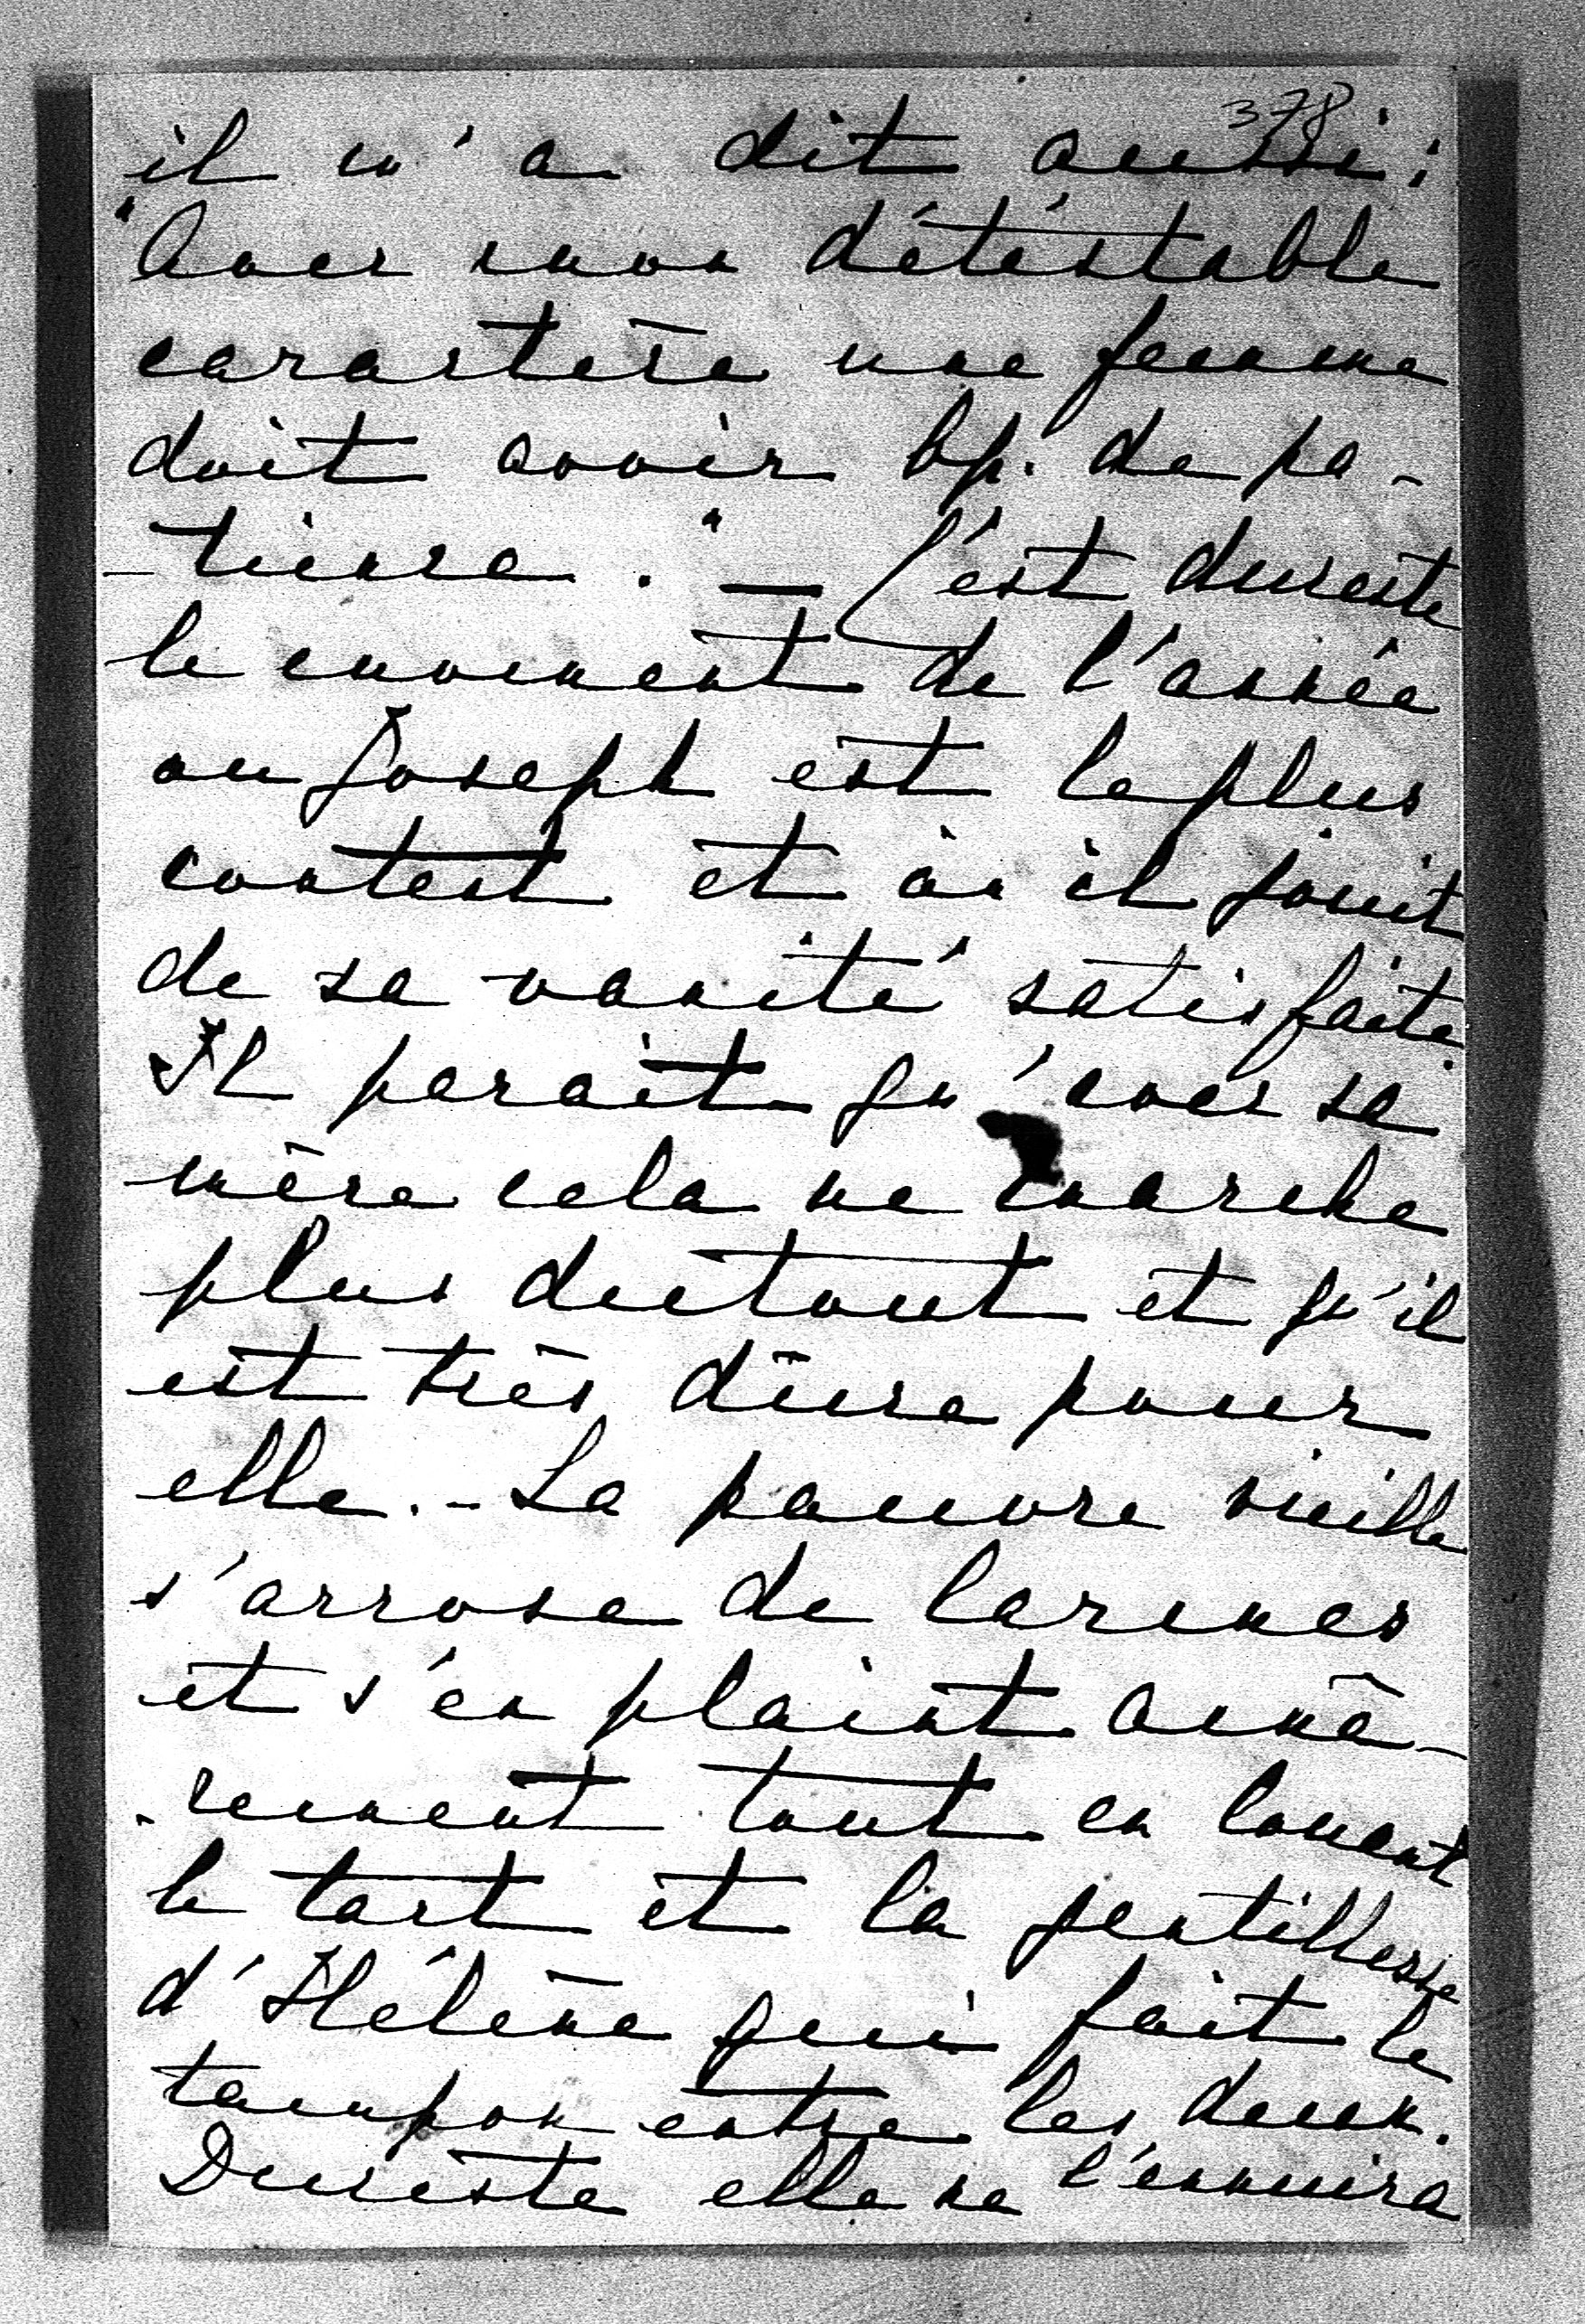 378
il m'a dit aussi :
"Avec mon détéstable
caractère une femme
doit avoir bp. de pa-
-tience." — C'est dureste
le moment de l'année
ou Joseph est le plus
content et où il jouit
de sa vanité satisfaite.
Il parait qu'avec sa
mère cela ne marche
plus dutout et qu'il
est très dûre pour
elle. - La pauvre vieille
s'arrose de larmes
et s'en plaint amè-
-rement tout en louant
le tact et la gentillesse
d'Hélène qui fait le
tampon entre les deux.
Dureste elle ne l'ennuira